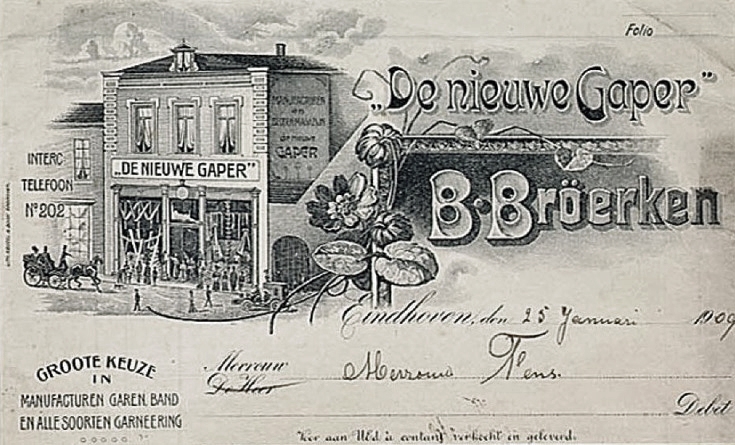 Folio
„De nieuwe Gaper”
B. Bröerken
MANUFACTUREN
en
GAPER
„DE NIEUWE GAPER”
INTERC
TELEFOON
No 202
Eindhoven, den 25 Januari 1909
GROOTE KEUZE
IN
MANUFACTUREN GAREN, BAND
EN ALLE SOORTEN GARNEERING
Mevrouw
De Heer
Debet
Voor aan UEd. is contant verkocht en geleverd.